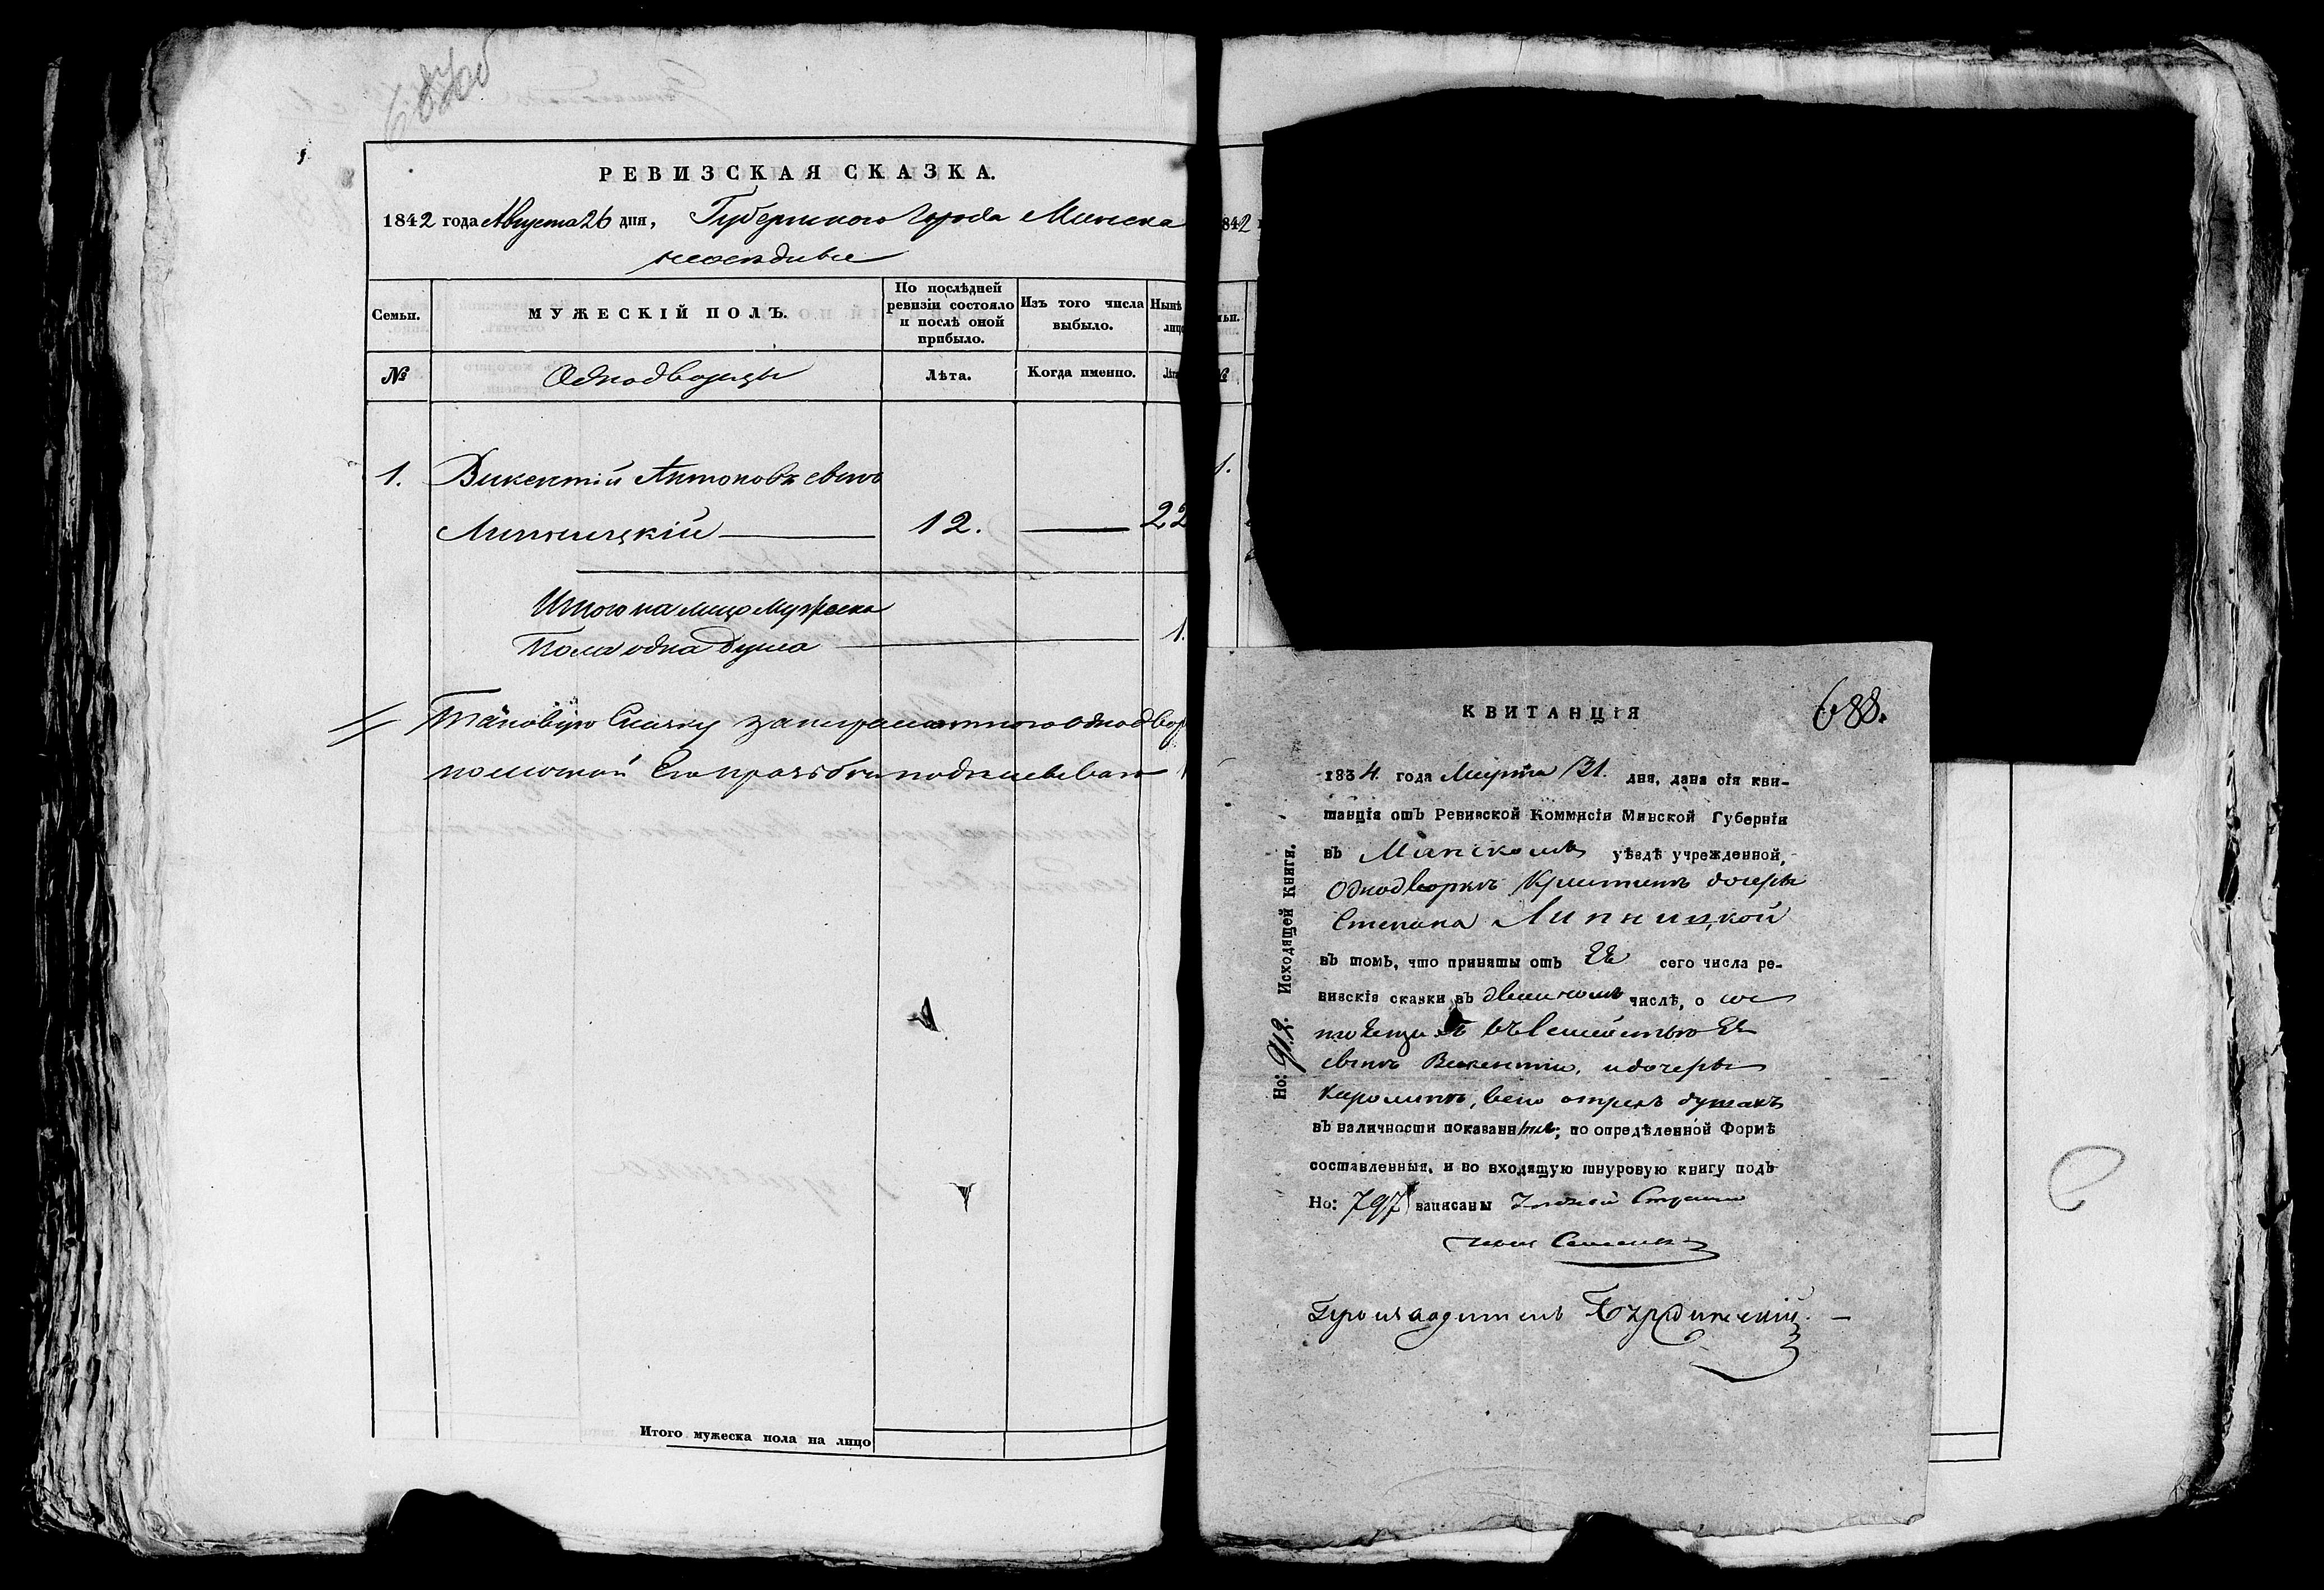 687об
РЕВИЗСКАЯ СКАЗКА.
1842 года Августа 26 дня, Губернскаго Города Минска
Семьи.
МУЖЕСКІЙ ПОЛЪ.
По послѣдней
ревизіи состояло
и послѣ оной
прибыло.
Изъ того числа
выбыло.
Нынѣ
лицо
№
Однодворцы
Лѣта.
Когда именно.
Лѣта
1. Викентій Антоновъ сынъ
Липницкій 12. 22
Итого на лицо мужеска
Пола одна душа 1.
Таковую Сказку за неграмотного однодвор
по личной Его прозьбы подписывалъ
Итого мужеска пола на лицо
842
№
1.
КВИТАНЦІЯ
688.
1834 года Марта 31. дня, дана сія кви-
танція отъ Ревизской Коммисіи Минской Губерніи
въ Минскомъ уѣздѣ учрежденной,
Однодворкѣ Кристинѣ дочери
Степана Липницкой
въ томъ, что приняты отъ Её сего числа ре-
визскія сказки въ двойномъ числѣ, о со
стоящихъ въ Семействѣ Её
сынѣ Викентіи, и дочери
Каролинѣ, всего о трехъ душахъ
въ наличности показанныя; по опредѣленной Формѣ
составленныя, и во входящую шнуровую книгу подъ
Но: 797 записаны
Производитель
Но: 912. Исходящей Книги.